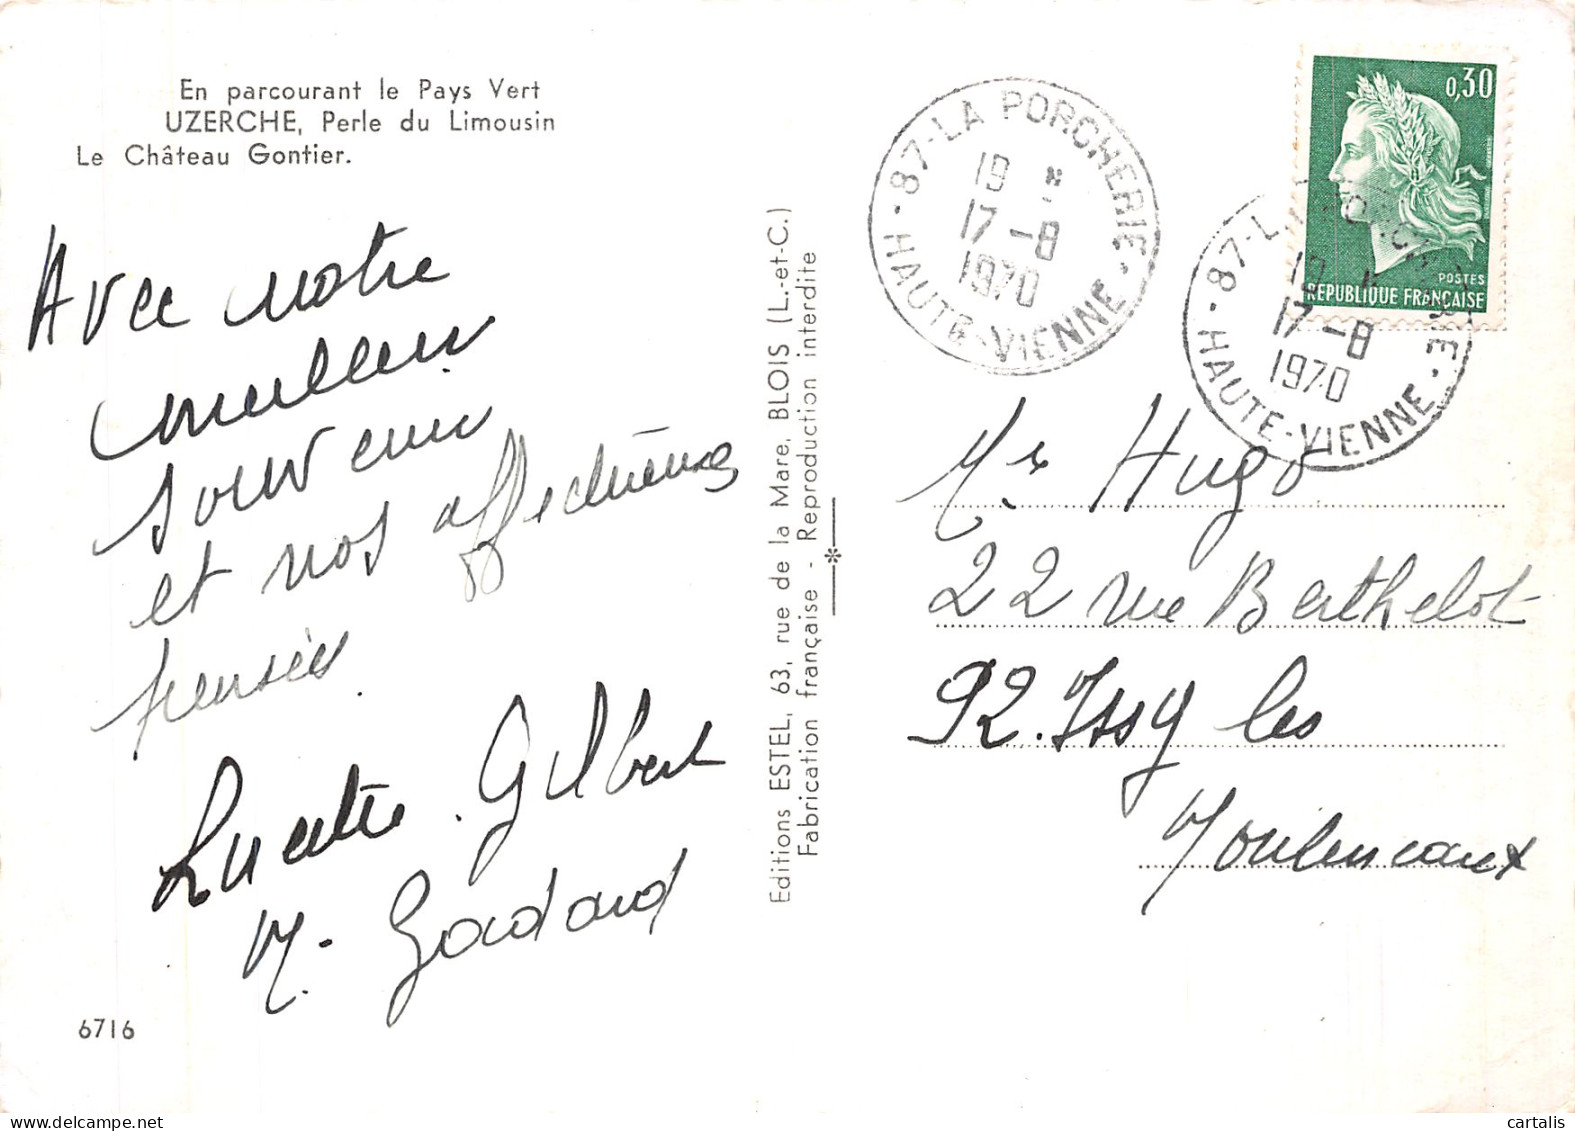 En parcourant le Pays Vert
UZERCHE, Perle du Limousin
Le Château Gontier.
Avec notre
meilleur
souvenir
et nos affectueuses
pensées.
Lucette. Gilbert
M. Godard
6716
Editions ESTEL, 63, rue de la Mare, BLOIS (L.-et-C.)
Fabrication française - Reproduction interdite
87-LA PORCHERIE
19 H
17-8
1970
HAUTE-VIENNE
0,30
POSTES
REPUBLIQUE FRANÇAISE
87-LA PORCHERIE
19 H
17-8
1970
HAUTE-VIENNE
Hugo
22 rue Berthelot
92. Issy les
Moulineaux
cartalis